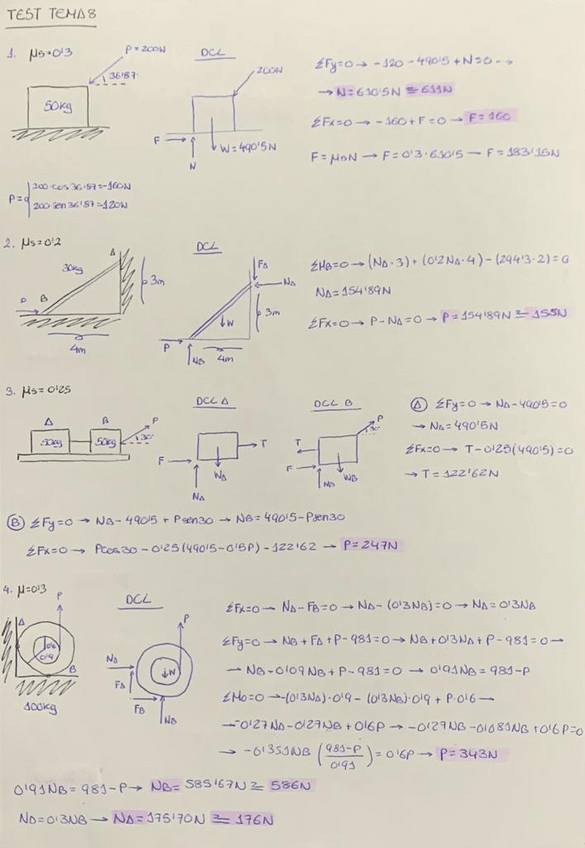 TEST TEMA 8
1. μs=0'3
P=200N
36'87°
50kg
DCL
200N
F
N
W=490'5N
ΣFy=0 → -120 - 490'5 + N = 0 →
→ N=610'5N ≅ 611N
ΣFx=0 → -160 + F = 0 → F=160
F=μsN → F=0'3·610'5 → F=183'15N
P=
200·cos36'87=-160N
200·sen36'87=-120N
2. μs=0'2
A
30kg
P
B
3m
4m
DCL
FA
NA
W
3m
P
NB
4m
ΣMB=0 → (NA·3)+(0'2NA·4)-(294'3·2)=0
NA=154'89N
ΣFx=0 → P-NA=0 → P=154'89N ≅ 155N
3. μs=0'25
A
B
P
50kg
50kg
30°
DCL A
T
F
WA
NA
DCL B
P
30°
T
F
WB
NB
A ΣFy=0 → NA-490'5=0
→ NA=490'5N
ΣFx=0 → T-0'25(490'5)=0
→ T=122'62N
B ΣFy=0 → NB-490'5+Psen30 → NB=490'5-Psen30
ΣFx=0 → Pcos30-0'25(490'5-0'5P)-122'62 → P=247N
4. μ=0'3
P
A
0'6
0'9
B
100kg
DCL
P
NA
W
FA
FB
NB
ΣFx=0 → NA-FB=0 → NA-(0'3NB)=0 → NA=0'3NB
ΣFy=0 → NB+FA+P-981=0 → NB+0'3NA+P-981=0 →
→ NB-0'09NB+P-981=0 → 0'91NB=981-P
ΣMo=0 → -(0'3NA)·0'9-(0'3NB)·0'9+P·0'6 →
→ -0'27NA-0'27NB+0'6P → -0'27NB-0'081NB+0'6P=0
→ -0'351NB (981-P/0'91) = 0'6P → P=343N
0'91NB=981-P → NB= 585'67N ≅ 586N
NA=0'3NB → NA=175'70N ≅ 176N